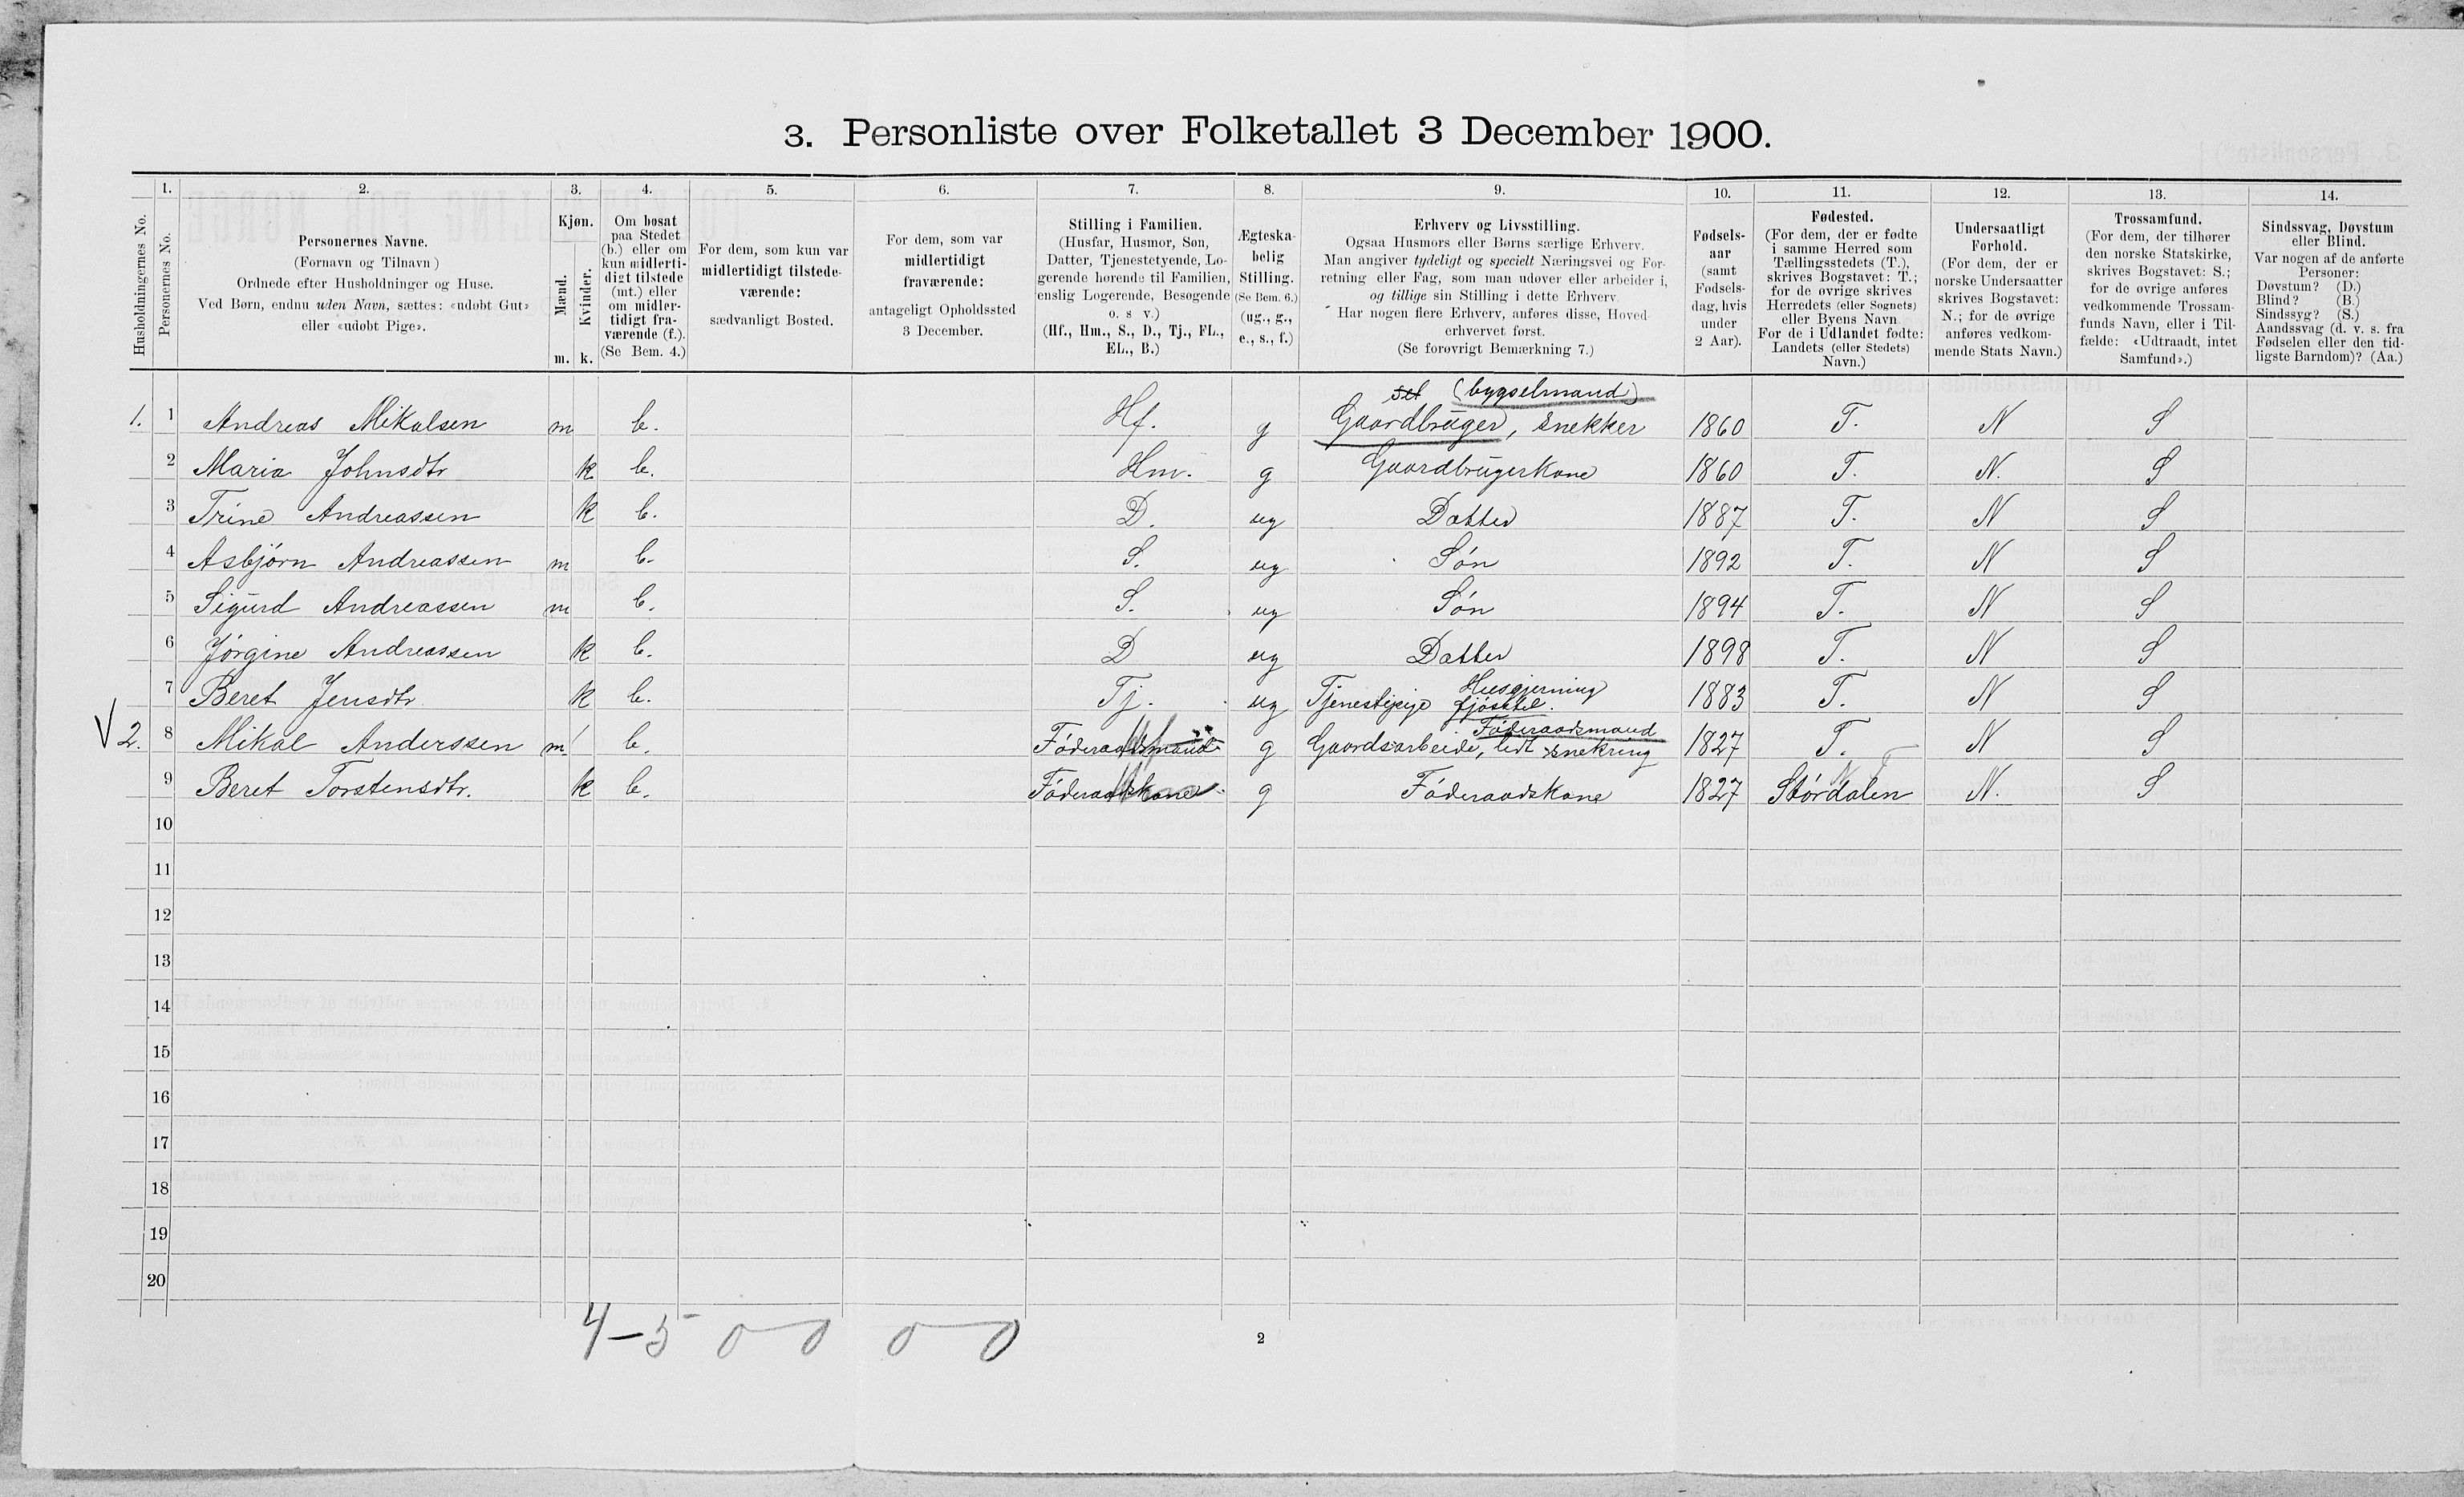 3. Personliste over Folketallet 3 December 1900.
Husholdningernes No.
1.
Personernes No.
2.
Personernes Navne.
(Fornavn og Tilnavn)
Ordnede efter Husholdninger og Huse.
Ved Børn, endnu uden Navn, sættes: «udøbt Gut»
eller «udøbt Pige».
3.
Kjøn.
Mænd.
Kvinder.
m. k.
4.
Om bosat
paa Stedet
(b.) eller om
kun midlerti-
digt tilstede
(mt.) eller
om midler-
tidigt fra-
værende (f.).
(Se Bem. 4.)
5.
For dem, som kun var
midlertidigt tilstede-
værende:
sædvanligt Bosted.
6.
For dem, som var
midlertidigt
fraværende:
antageligt Opholdssted
3 December.
7.
Stilling i Familien.
(Husfar, Husmor, Søn,
Datter, Tjenestetyende, Lo-
gerende hørende til Familien,
enslig Logerende, Besøgende
o. s v.)
(Hf., Hm., S., D., Tj., FL.,
EL., B.)
8.
Ægteska-
belig
Stilling.
(Se Bem. 6.)
(ug., g.,
e., s., f.)
9.
Erhverv og Livsstilling.
Ogsaa Husmors eller Børns særlige Erhverv.
Man angiver tydeligt og specielt Næringsvei og For-
retning eller Fag, som man udøver eller arbeider i,
og tillige sin Stilling i dette Erhverv.
Har nogen flere Erhverv, anføres disse, Hoved-
erhvervet først.
(Se forøvrigt Bemærkning 7.)
10.
Fødsels-
aar
(samt
Fødsels-
dag, hvis
under
2 Aar).
11.
Fødested.
(For dem, der er fødte
i samme Herred som
Tællingsstedets (T.),
skrives Bogstavet: T.;
for de øvrige skrives
Herredets (eller Sognets)
eller Byens Navn
For de i Udlandet fødte:
Landets (eller Stedets)
Navn.)
12.
Undersaatligt
Forhold.
(For dem, der er
norske Undersaatter
skrives Bogstavet:
N.; for de øvrige
anføres vedkom-
mende Stats Navn.)
13.
Trossamfund.
(For dem, der tilhører
den norske Statskirke,
skrives Bogstavet: S.;
for de øvrige anføres
vedkommende Trossam-
funds Navn, eller i Til-
fælde: «Udtraadt, intet
Samfund».)
14.
Sindssvag, Døvstum
eller Blind.
Var nogen af de anførte
Personer:
Døvstum? (D.)
Blind? (B.)
Sindssyg? (S.)
Aandssvag (d. v. s. fra
Fødselen eller den tid-
ligste Barndom)? (Aa.)
sel (bygselmand)
1. 1 Andreas Mikalsen m b. Hf. g Gaardbruger, Snekker 1860 T. N S
2 Maria Johnsdtr k b. Hm. g Gaardbrugerkone 1860 T. N. S
3 Trine Andreassen k b. D. ug Datter 1887 T. N S
4 Asbjørn Andreassen m b. S. ug Søn 1892 T. N S
5 Sigurd Andreassen m b. S. ug Søn 1894 T. N S
6 Jørgine Andreassen k b. D ug Datter 1898 T. N S
Husgjerning
7 Beret Jensdtr k b. Tj. ug Tjenestepige fjøsstel. 1883 T. N S
Føderaadsmand
V 2. 8 Mikal Anderssen m b. Føderaadsmand g Gaardsarbeide, lidt snekring 1827 T. N S
9 Beret Torstensdtr. k b. Føderaadskone g Føderaadskone 1827 Størdalen N. S
10
11
12
13
14
15
16
17
18
19
20
4-5 0 0 0 0
2